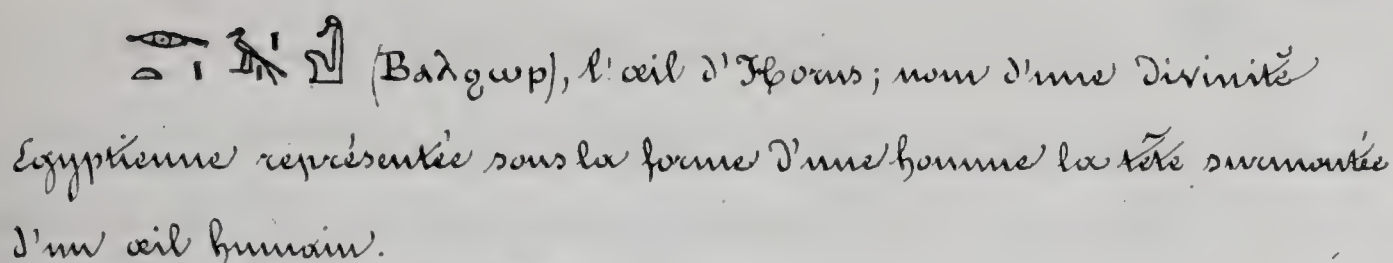 (Ⲃⲁⲗϩⲱⲣ), l'œil d'Horus; nom d'une divinité
Egyptienne représentée sous la forme d'une homme la tête surmontée
d'un œil humain.